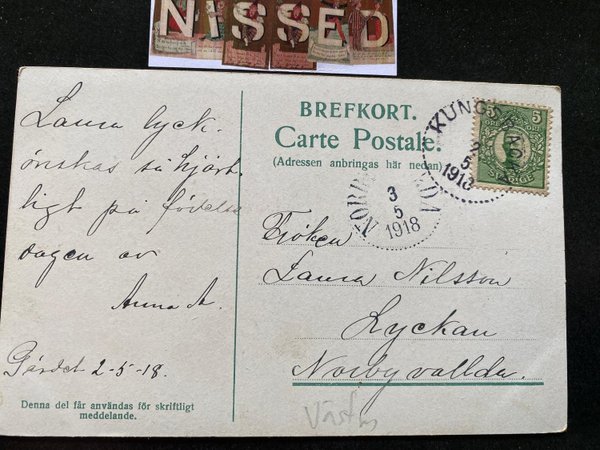 NISSED
Laura lyck-
önskas så hjärt-
ligt på födelse
dagen av
Anna A.
Gärdet 2-5-18.
Denna del får användas för skriftligt
meddelande.
BREFKORT.
Carte Postale.
(Adressen anbringas här nedan)
5
KUNGS
2
5
1918
NORR
3
5
1918
Fröken
Laura Nilsson
Lyckan
Norby vallda.